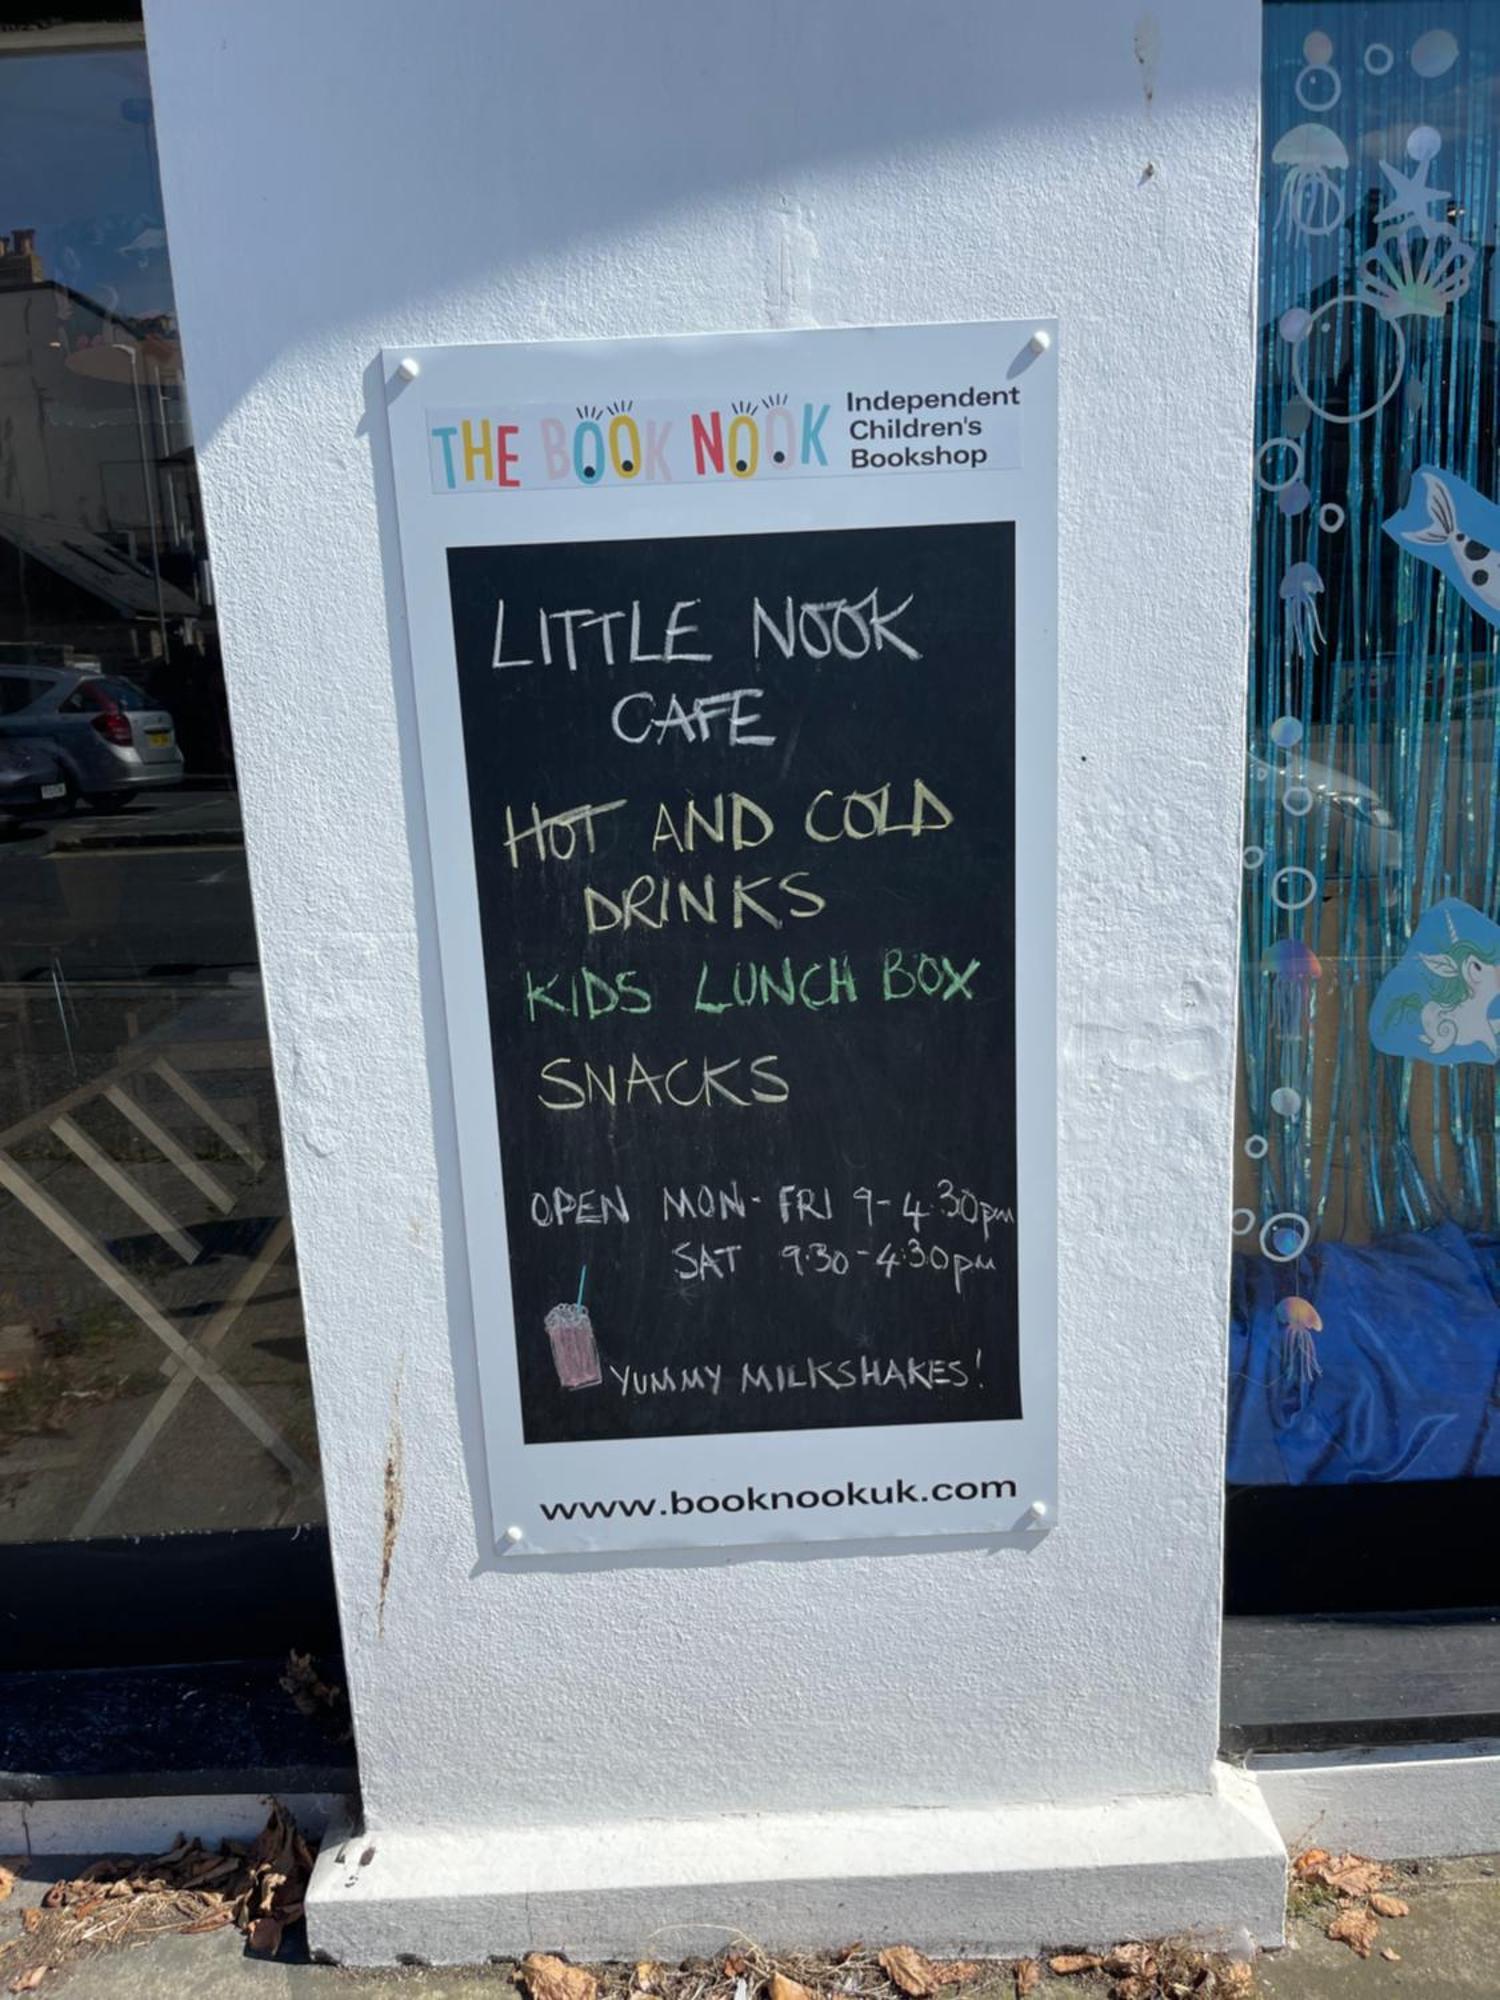 THE BOOK NOOK
Independent
Children's
Bookshop
LITTLE NOOK
CAFE
HOT AND COLD
DRINKS
KIDS LUNCH BOX
SNACKS
OPEN MON- FRI 9-4.30pm
SAT 9.30-4.30pm
YUMMY MILKSHAKES!
www.booknookuk.com